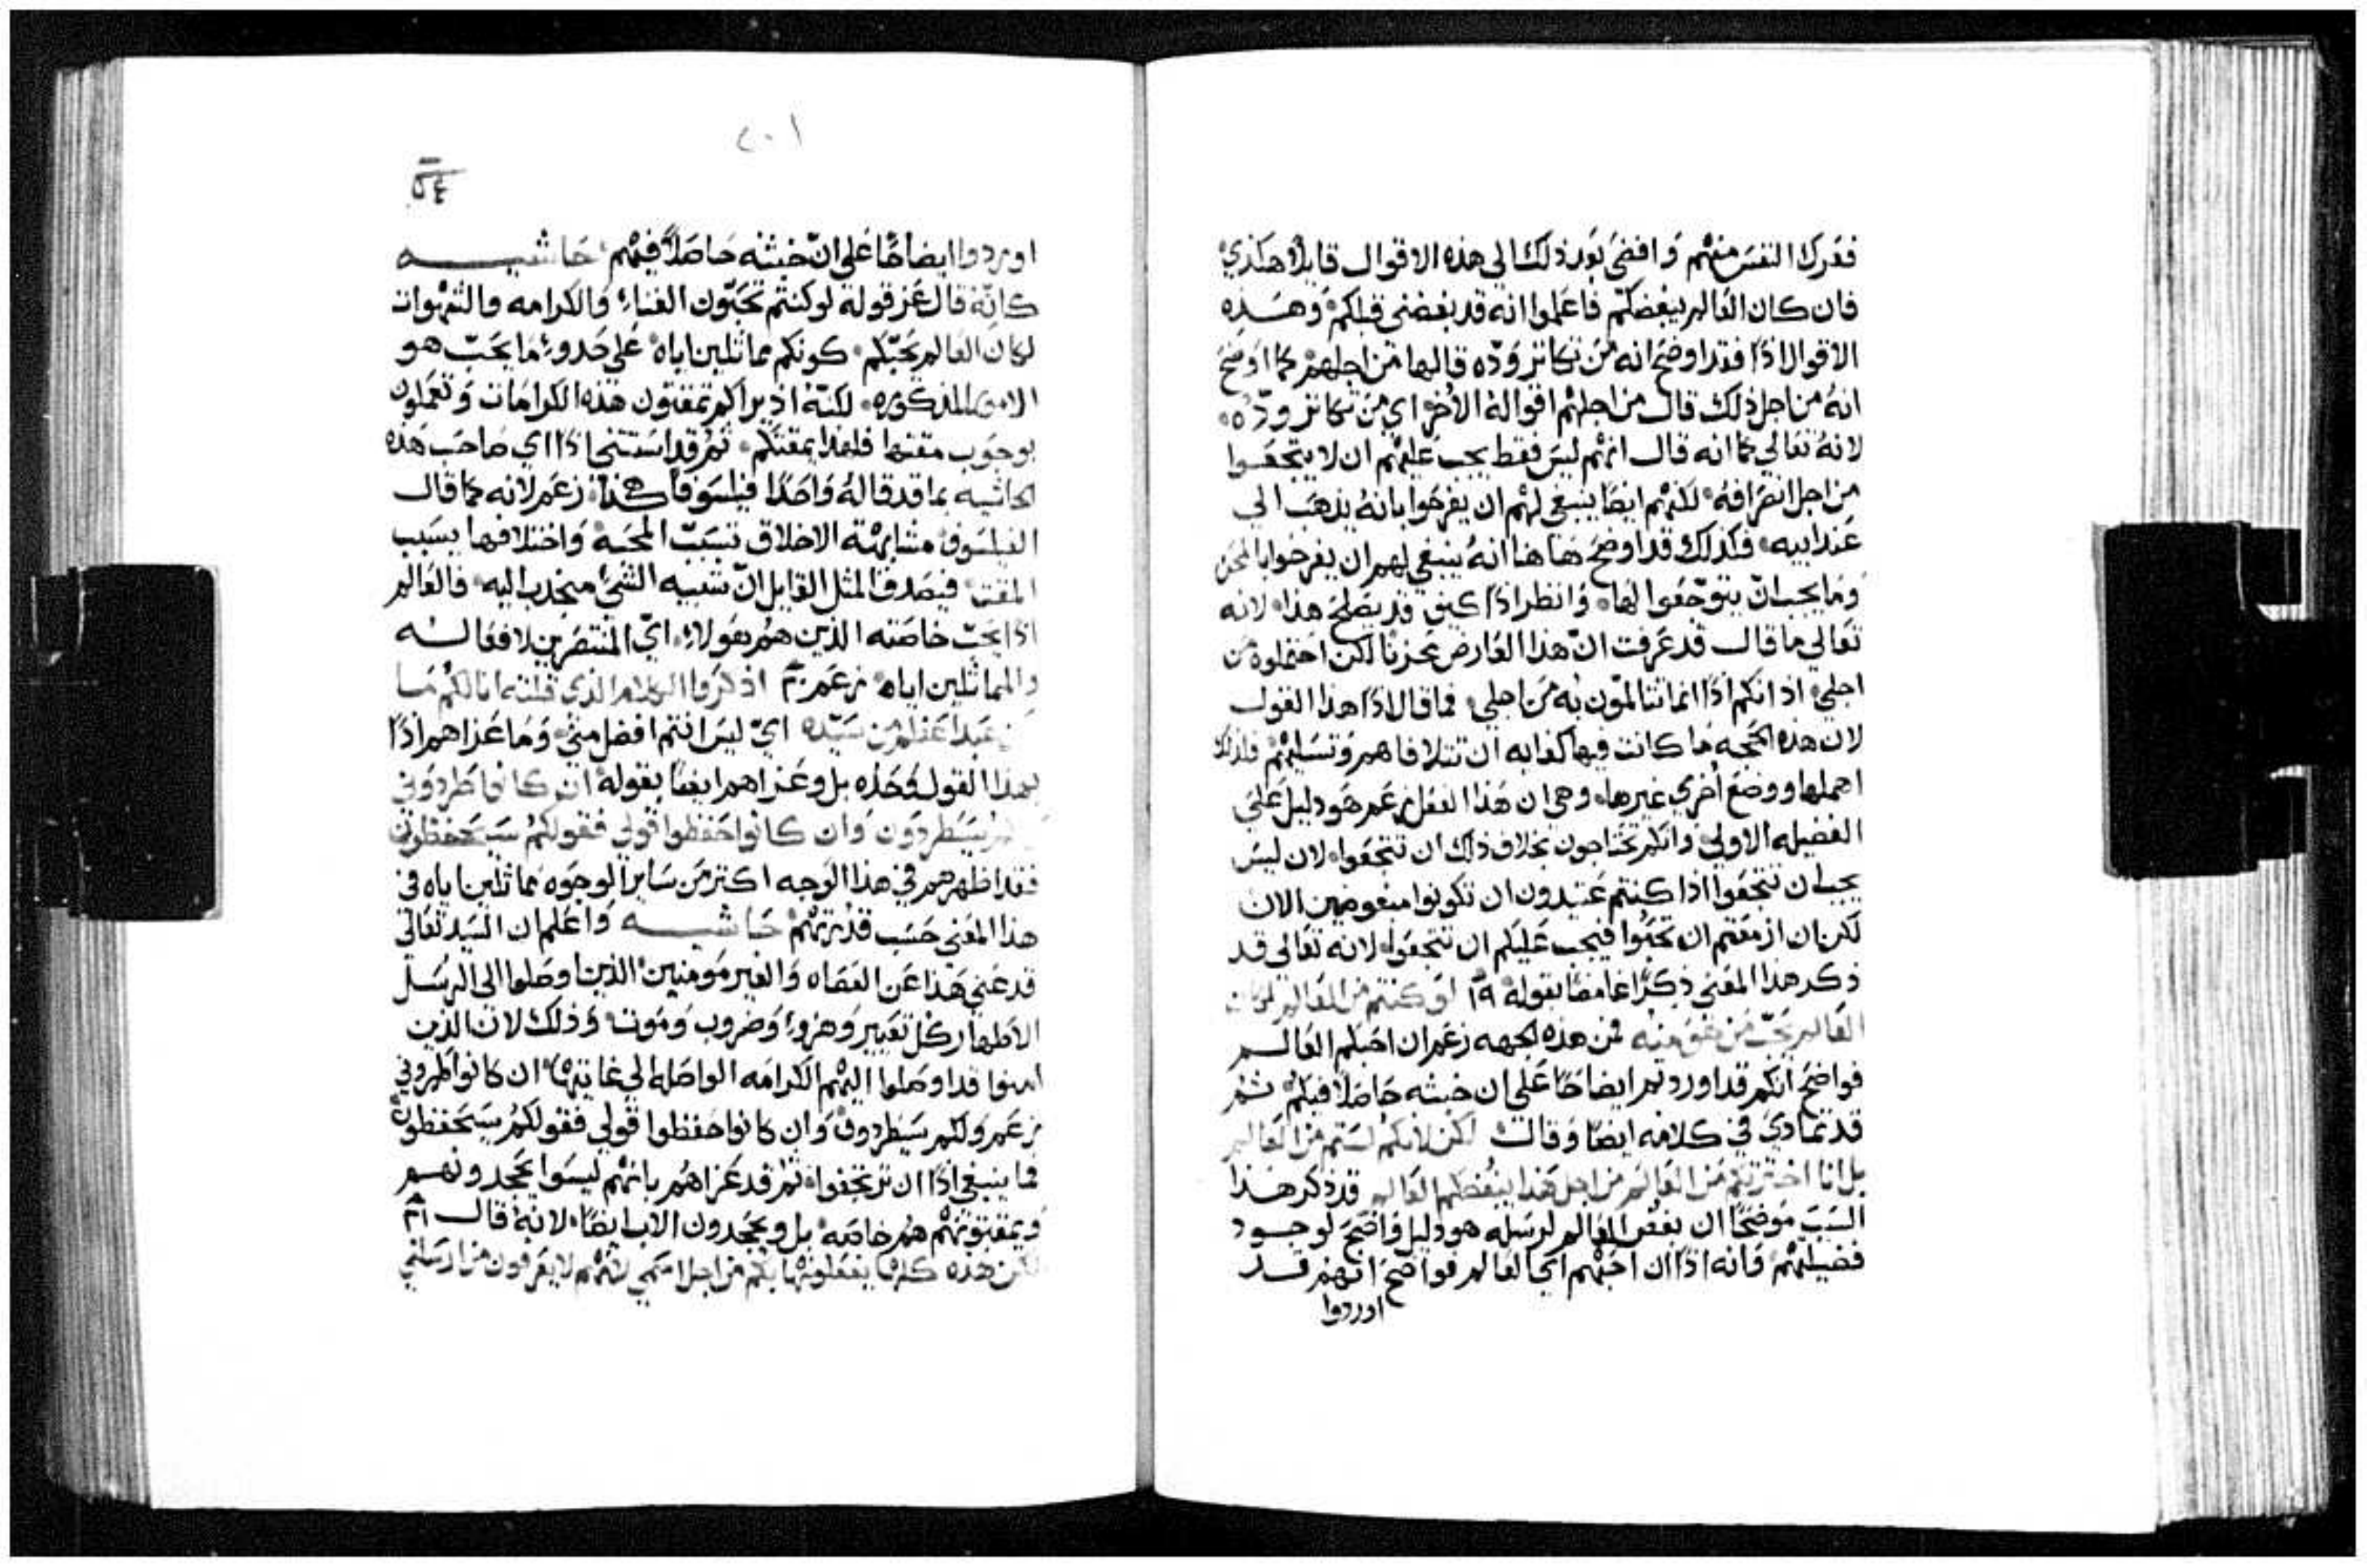 فقدرك النفس منهم وافضي بعد ذلك الي هذه الاقوال قايلا هكذي
فان كان العالم يبغضكم فاعلموا انه قد بغضني قبلكم وهذه
الاقوال اذا فقد اوضح انه من تكاثر وده قالها من اجلهم كما اوضح
انه من اجل ذلك قال من اجلهم اقواله الاخر اي من تكاثر وده
لانه تعالي كما انه قال انهم ليس فقط يجب عليهم ان لا يتجعوا
من اجل انصرافه لكنهم ايضا ينبغي لهم ان يفرحوا بانه يذهب الي
عند ابيه فكذلك قد اوضح هاهنا انه ينبغي لهم ان يفرحوا بالمحن
وما يجب ان يتوجعوا لها وانظر اذا كيف قد يصلح هذا لانه
تعالي ما قال قد عرفت ان هذا العارض محزنا لكن احتملوه من
اجلي اذ انكم اذا انما تتالمون به من اجلي فما قال اذا هذا القول
لان هذه الحجه ما كانت فيها كفايه ان تتلافاهم وتسليهم فلذلك
اهملها ووضع اخري غيرها وهي ان هذا الفعل زعم هو دليل علي
الفضيله الاولي وانكم تحتاجون بخلاف ذلك ان تتجعوا لان ليس
يجب ان تتجعوا اذا كنتم عتيدون ان تكونوا مبغوضين الان
لكن ان ازمعتم ان تحبوا فيجب عليكم ان تتجعوا لانه تعالي قد
ذكر هذا المعني ذكرا غامضا بقوله ١٩ لو كنتم من العالم لكان
العالم يحب من هو منه فمن هذه الجهه زعم ان احبكم العالم
فواضح انكم قد اوردتم ايضاحا علي ان خبثه حاصلا فيكم ثم
قد تمادي في كلامه ايضا وقال لكن لانكم لستم من العالم
بل انا اخترتكم من العالم من اجل هذا يبغضكم العالم قد ذكر هذا
السبب موضحا ان بغض العالم لرسله هو دليل واضح لوجود
فضيلتهم وانه اذا ان احبهم اي العالم فواضح انهم قد
اوردوا
٢٠١
٥٤
اوردوا ايضاحا علي ان خبثه حاصلا فيهم حاشيه
كانه قال عز قوله لو كنتم تحبون الغناء والكرامه والشهوات
لكان العالم يحبكم كونكم مماثلين اياه علي حدو ما يحب هو
الامور المذكوره لكنه اذ يراكم تمقتون هذه الكرامات وتعملون
بوجوب مقتها فلهذا يمقتكم ثم قد استثني اذا اي صاحب هذه
الحاشيه بما قد قاله واحدا فيلسوفا هكذا زعم لانه كما قال
الفيلسوف مشابهة الاخلاق تسبب المحبة واختلافها يسبب
المقت فيصدق المثل القايل ان شبيه الشي منجذب اليه فالعالم
اذا يحب خاصته الذين هم هولاء اي المنتصرين لافعاله
والمماثلين اياه زعم ٢٠ اذكروا الكلام الذي قلته انا لكم ما
من عبد اعظم من سيده اي ليس انتم افضل مني وما عزاهم اذا
بهذا القول وحده بل وعزاهم ايضا بقوله ان كانوا طردوني
سيطردون وان كانوا حفظوا قولي فقولكم سيحفظون
فقد اظهرهم في هذا الوجه اكثر من ساير الوجوه مماثلين اياه في
هذا المعني حسب قدرتهم حاشيه واعلم ان السيد تعالي
قد عني هذا عن العصاه والغير مومنين الذين اوصلوا الي الرسل
الاطهار كل تعيير وهزو وضروب وموت وذلك لان الذين
امنوا قد اوصلوا اليهم الكرامه الواصله الي غايتها ان كانوا طردوني
زعم ولكم سيطردون وان كانوا حفظوا قولي فقولكم سيحفظون
فما ينبغي اذا ان ترتجفوا ثم قد عزاهم بانهم ليسوا يجحدونهم
ويمقتونهم هم خاصه بل ويجحدون الاب ايضا لانه قال ٢١
لكن هذه كلها يفعلونها بكم من اجل اسمي لانهم لا يعرفون من ارسلني